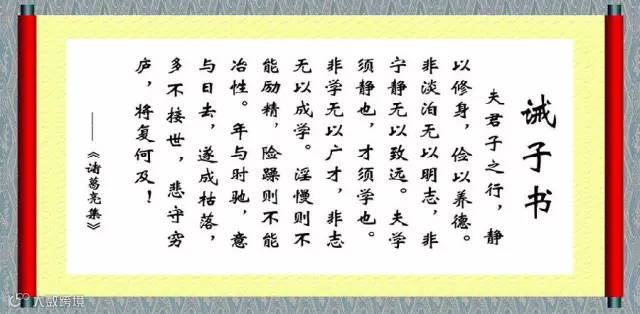 诫子书
夫君子之行，静
以修身，俭以养德。
非淡泊无以明志，非
宁静无以致远。夫学
须静也，才须学也。
非学无以广才，非志
无以成学。淫慢则不
能励精，险躁则不能
冶性。年与时驰，意
与日去，遂成枯落，
多不接世，悲守穷
庐，将复何及！
——《诸葛亮集》
大数跨境